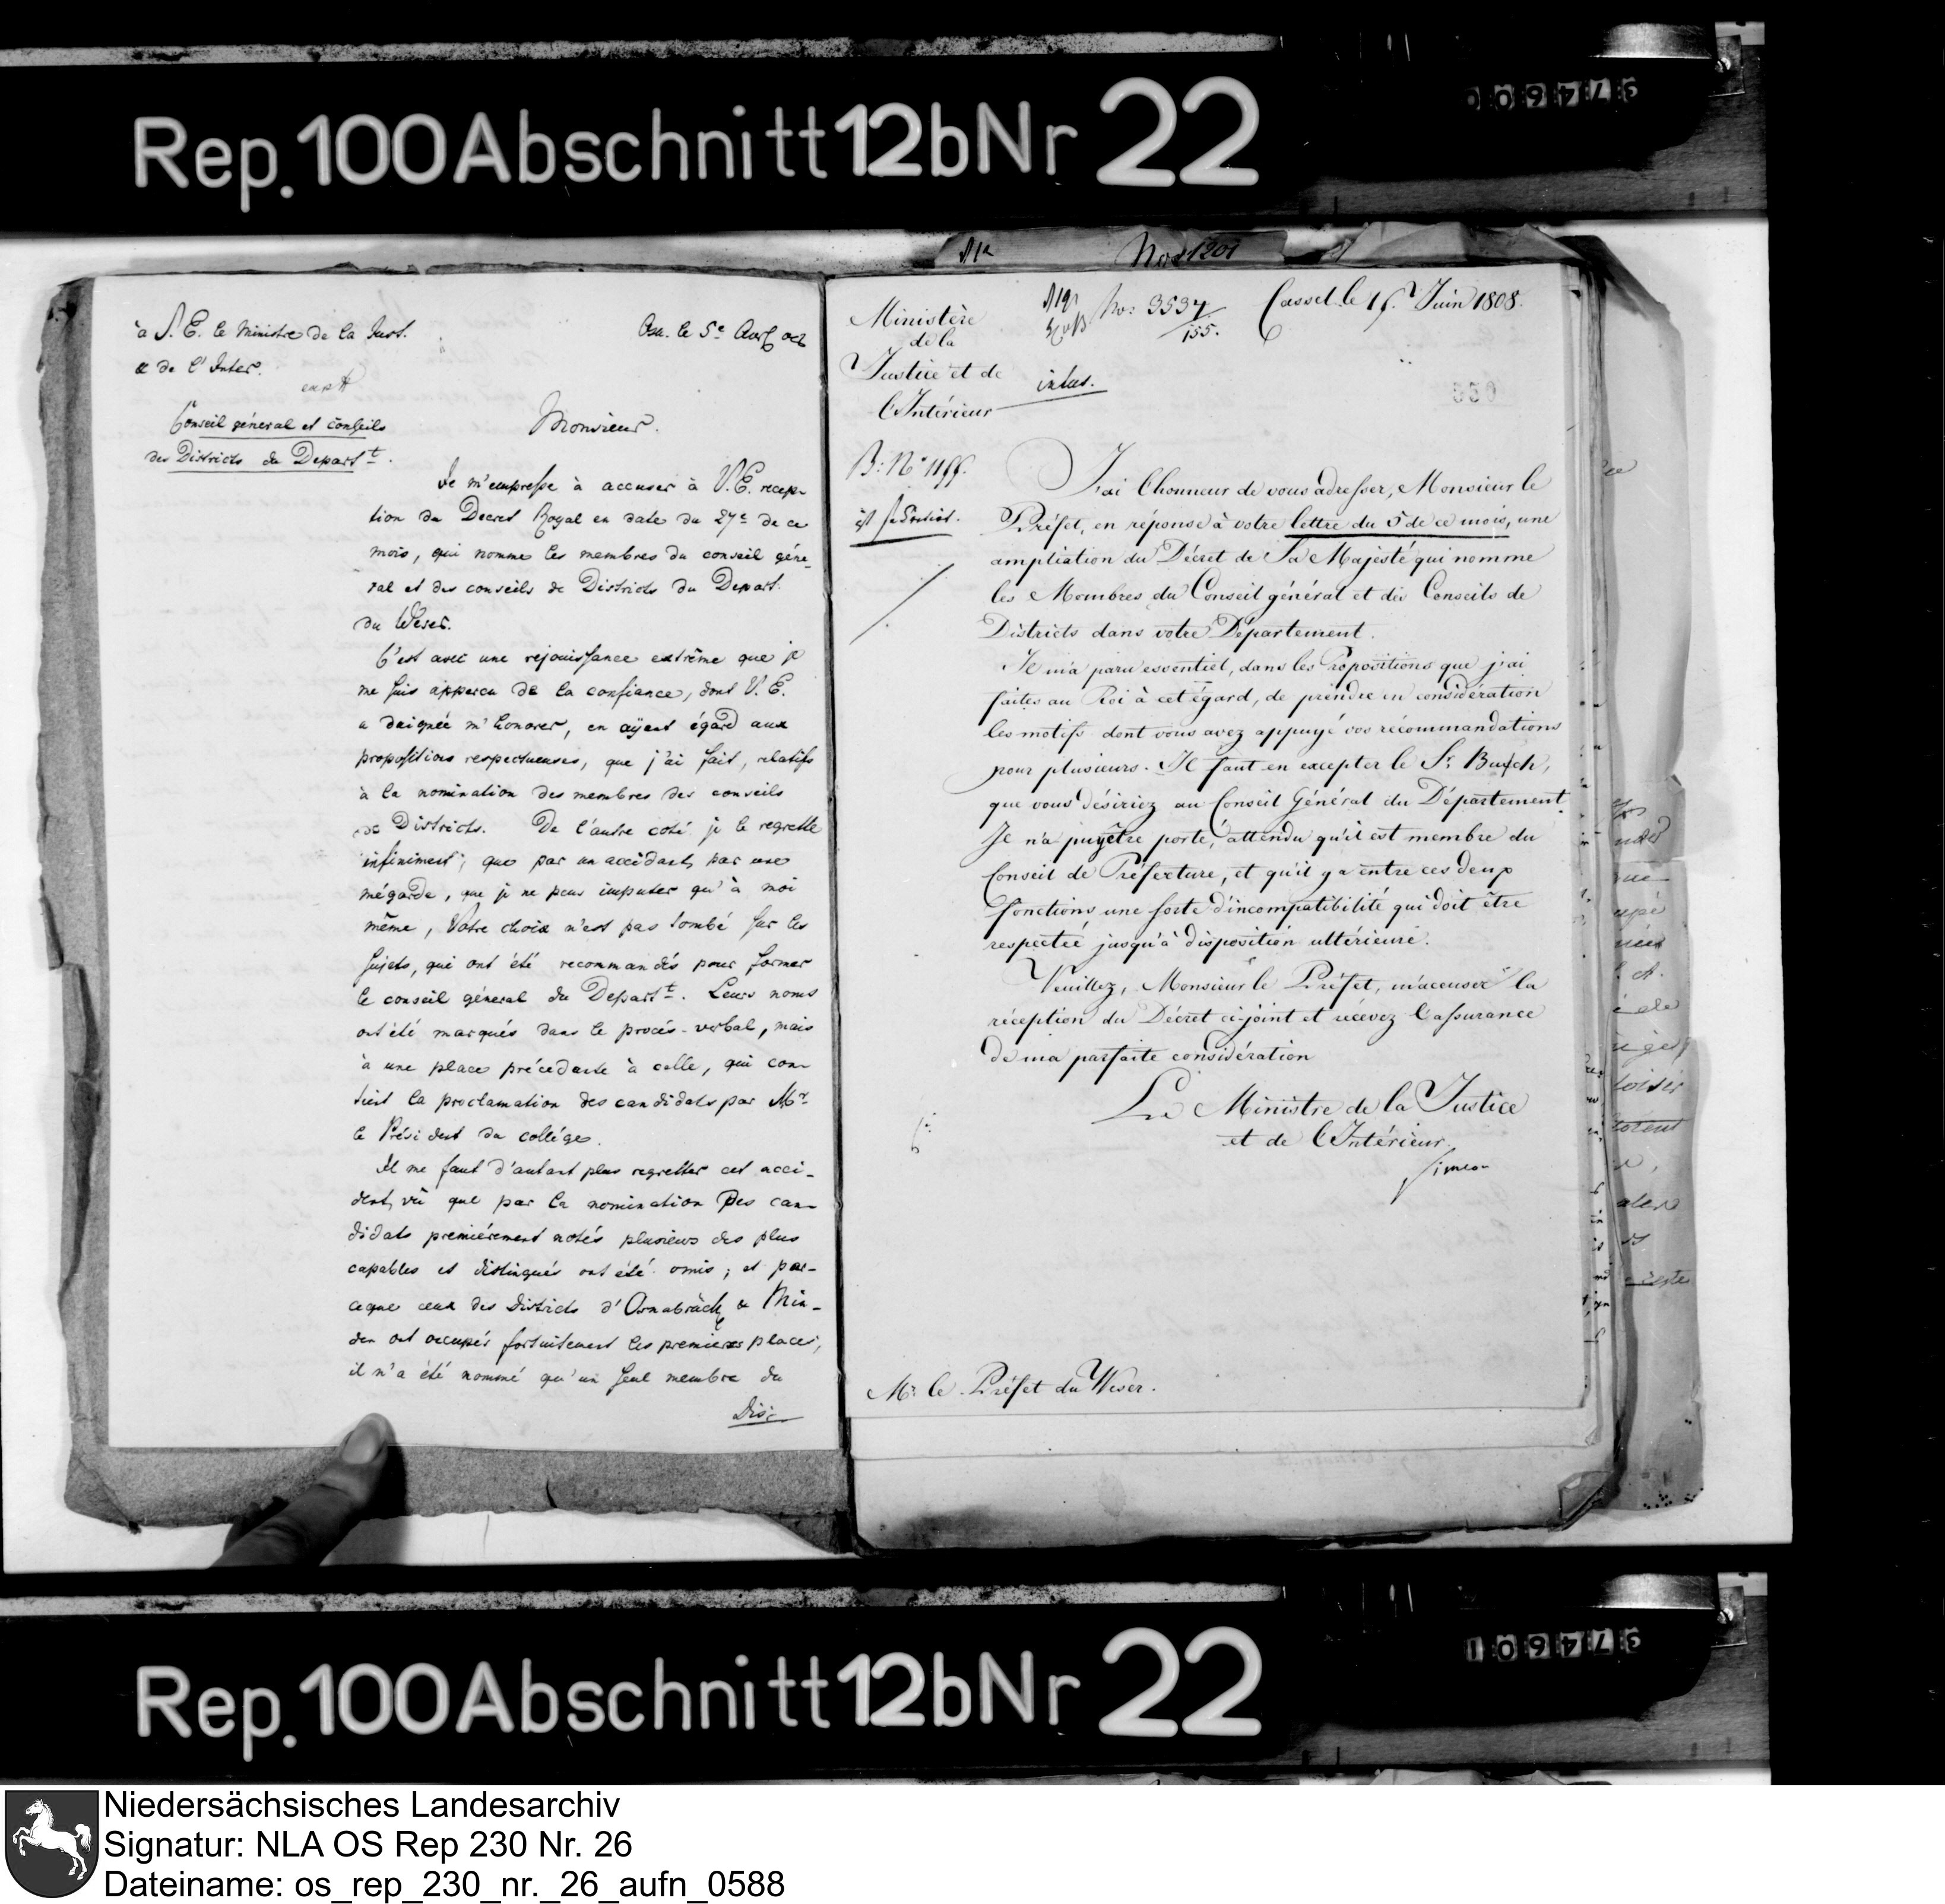 Rep. 100 Abschnitt 12b Nr 22
à S. E. le Ministre de la Just.
& de l'Inter.
Conseil géneral et conseils
des Districts du Depart.t
Osn. le 5e
Monsieur.
Je m'empresse à accuser à V. E. recep-
tion du Decret Royal en date du 27e de ce
mois, qui nomme les membres du conseil géne-
ral et des conseils de Districts du Depart.
du Weser.
C'est avec une rejouissance extrême que je
me suis apperçu de la confiance, dont V. E.
a daignée m'honorer, en ayent égard aux
propositions respectueuses, que j'ai fait, relatifs
à la nomination des membres des conseils
de Districts. De l'autre coté je le regrette
infiniment, que par un accidant, par une
mégarde, que je ne peus imputer qu'à moi
même, Votre choix n'est pas tombé sur les
sujets, qui ont été recommandés pour former
le conseil géneral du Depart.t. Leurs noms
ont été marqués dans le procés-verbal, mais
à une place précedante à celle, qui con-
tient la proclamation des candidats par Mr
le Président du collége.
Il me faut d'autant plus regretter cet acci-
dent, vû que par la nomination des can-
didats premiérement notés plusieurs des plus
capables et distingués ont été omis; et par-
ceque ceux des Districts d'Osnabrück & Min-
den ont occupés fortuitement les premieres places,
il n'a été nommé qu'un seul membre du
Dis-
No 1201
Ministère
de la
Justice et de
l'Intérieur
No: 3534/155.
Cassel le Juin 1808.
B: No
J'ai l'honneur de vous adresser, Monsieur le
Préfet, en réponse à votre lettre du 5 de ce mois, une
ampliation du Décret de Sa Majesté qui nomme
les Membres du Conseil général et des Conseils de
Districts dans votre Département.
Il m'a paru essentiel, dans les Propositions que j'ai
faites au Roi à cet égard, de prendre en considération
les motifs dont vous avez appuyé vos récommandations
pour plusieurs. Il faut en excepter le Sr. Busch,
que vous désiriez au Conseil Général du Département.
Il n'a pu y être porté, attendu qu'il est membre du
Conseil de Préfecture, et qu'il y a entre ces deux
fonctions une sorte d'incompatibilité qui doit être
respectée jusqu'à disposition ultérieure.
Veuillez, Monsieur le Préfet, m'accuser la
réception du Décret ci-joint et recevez l'assurance
de ma parfaite considération
Le Ministre de la Justice
et de l'Intérieur.
Simeon
Mr. le Préfet du Weser.
Rep. 100 Abschnitt 12b Nr 22
Niedersächsisches Landesarchiv
Signatur: NLA OS Rep 230 Nr. 26
Dateiname: os_rep_230_nr._26_aufn_0588